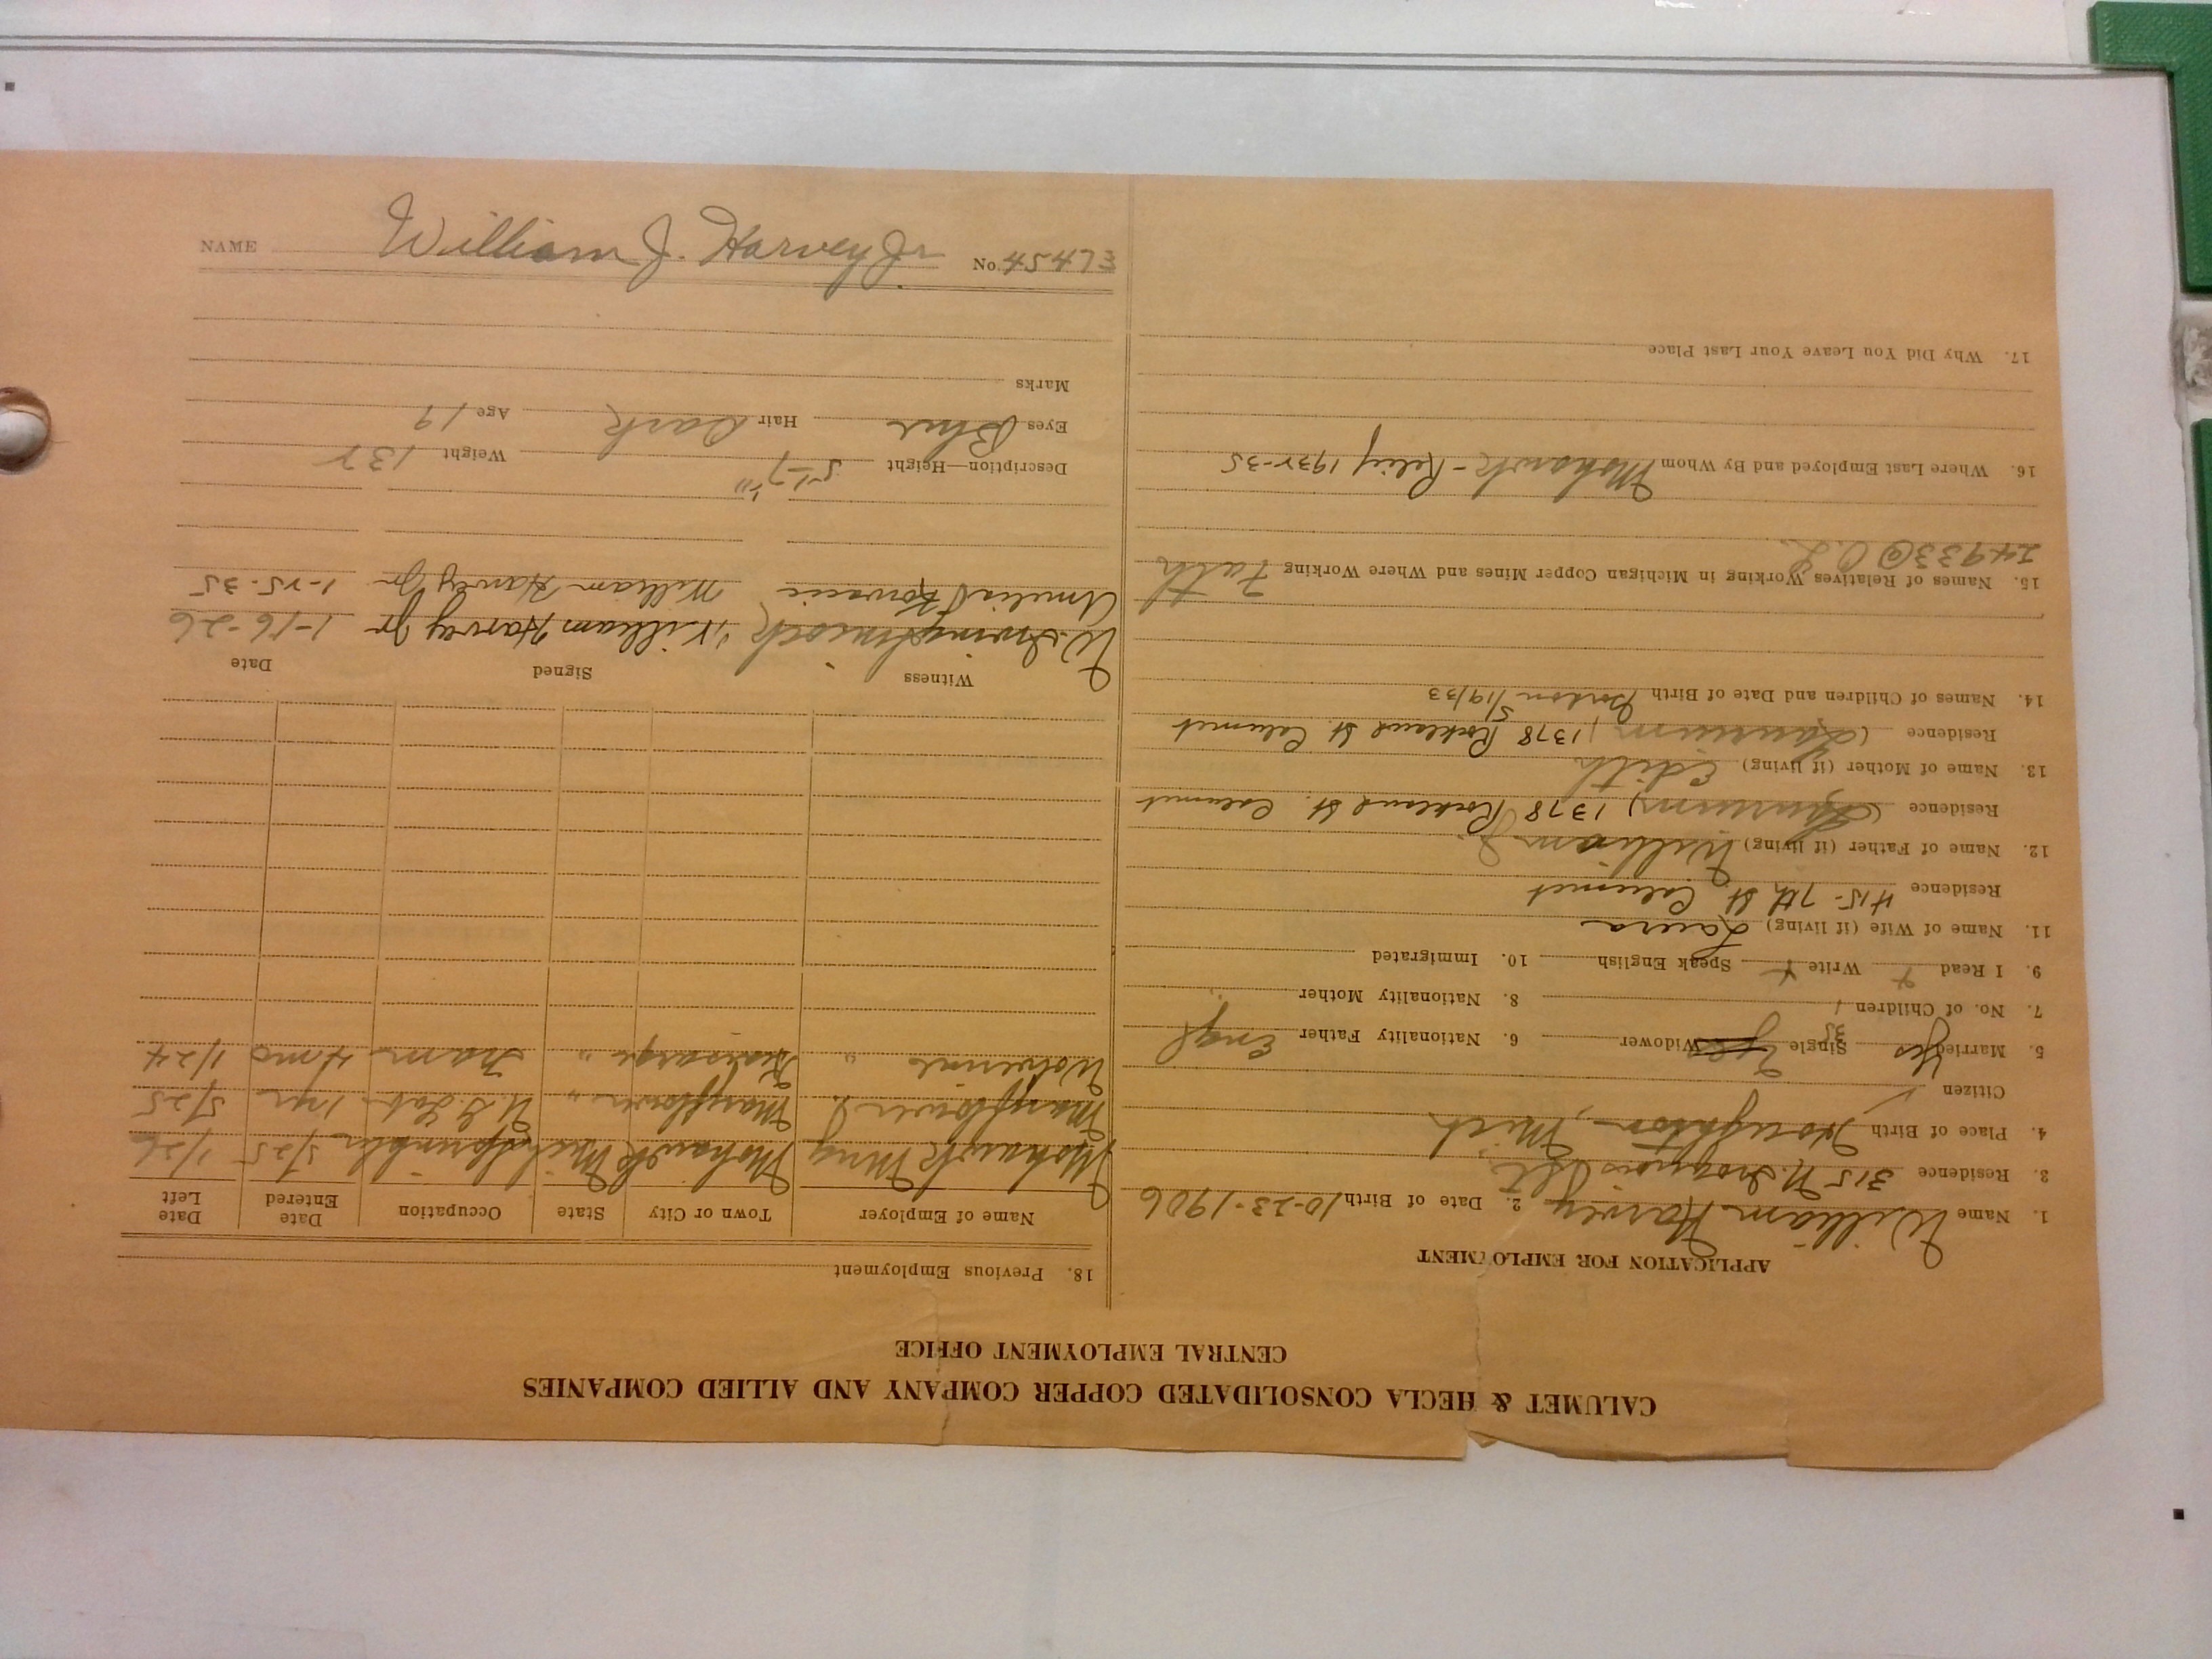 CALUMET & HECLA CONSOLIDATED COPPER COMPANY AND ALLIED COMPANIES
CENTRAL EMPLOYMENT OFFICE
APPLICATION FOR EMPLOYMENT
1. Name William Harvey 2. Date of Birth 10-23-1906
3. Residence 315 N. Iroquois St.
4. Place of Birth Houghton, Mich
Citizen ✓
5. Married Yes 35 Single Yes Widower 6. Nationality Father Engl
7. No. of Children 1 8. Nationality Mother "
9. I Read Write Speak English 10. Immigrated
11. Name of Wife (if living) Laura
Residence 415-7th St. Calumet
12. Name of Father (if living) William J.
Residence (Laurium) 1378 Rockland St. Calumet
13. Name of Mother (if living) Edith
Residence (Laurium) 1378 Rockland St. Calumet
14. Names of Children and Date of Birth Gordon 5/19/33
15. Names of Relatives Working in Michigan Copper Mines and Where Working Fath
24933 @ C.L.
16. Where Last Employed and By Whom Mohawk - Relief 1932-35
17. Why Did You Leave Your Last Place
18. Previous Employment
Name of Employer Town or City State Occupation Date Entered Date Left
Mohawk Mng Mohawk Mich 5/25 1/26
Mayflower " Mayflower " U.G. Lab- 1 yr 5/25
Wolverine " Kearsarge " Tram 4 mo 1/24
Witness Signed Date
W. Irving William Harvey Jr 1-16-26
Amelia William Harvey Jr 1-25-35
Description—Height 5'-7" Weight 132
Eyes Blue Hair Dark Age 19
Marks
NAME William J. Harvey Jr. No. 45473